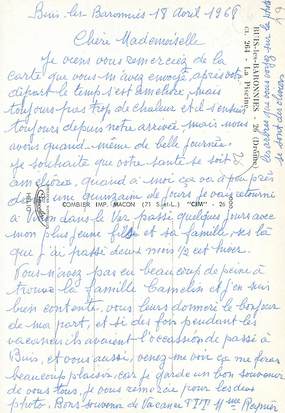 Buis-les-Baronnies 18 Avril 1968
Chère Mademoiselle
Je viens vous remerciez de la
carte que vous m'avez envoyé, après votre
départ le temps s'est améliorer, mais
toujours pas trop de chaleur et il
toujours depuis notre arrivée mais nous
avons quand-même de belle journées
Je souhaite que votre santé se soit
améliorer, quand à moi ça va à peu près
dans une quinzaine de jours je vais
à dans le Var passé quelques jours avec
mon plus jeune fils et sa famille, là
que j'ai passé deux mois ½ cet hiver.
Vous n'avez pas eu beaucoup de peine à
trouver la famille Camelin et j'en suis
bien contente, vous leurs donneré le bonjour
de ma part, et si des fois pendant les
vacances ils avaient l'occasion de passé à
Buis, et vous aussi, venez me voir ça me feras
beaucoup plaisir, car je garde un bon souvenir
de vous tous, je vous remercie pour les deux
photo. Bons souvenir de Vacances
BUIS-les-BARONNIES - 26 (Drôme)
CL. 264 - La Piscine
les arbres que vous voyez sur la photo
se sont des
COMBIER IMP. MACON (71 S.-et-L.) "CIM"